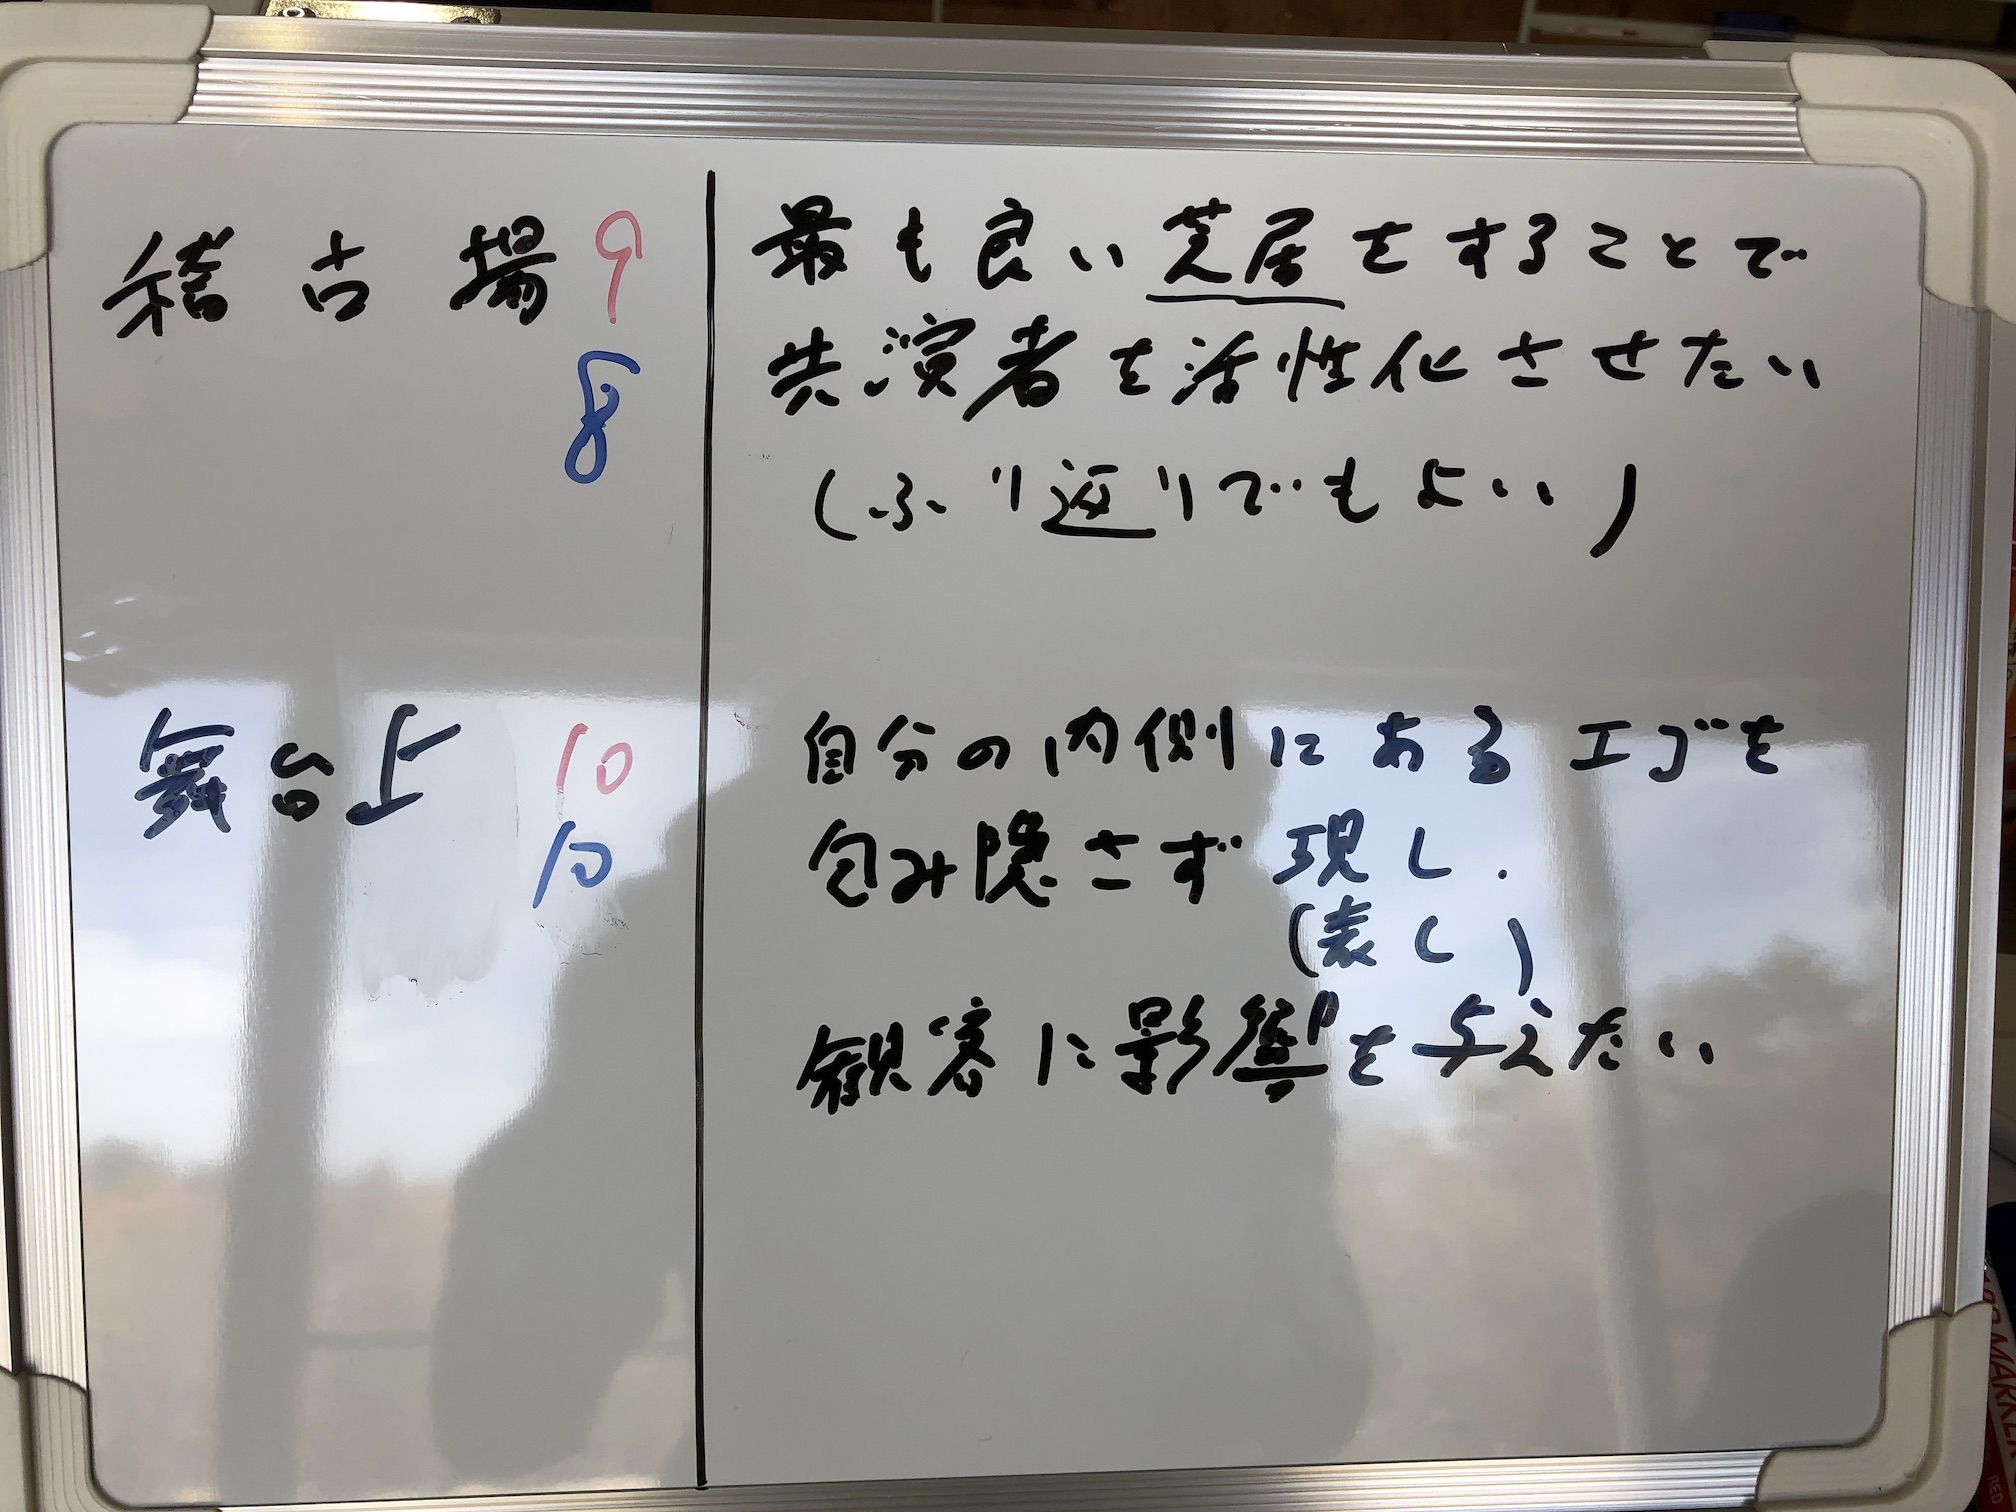 稽古場 9
8
最も良い芝居をすることで
共演者を活性化させたい
(ふり返りでもよい)
舞台上 10
10
自分の内側にあるエゴを
包み隠さず現し.
(表し)
観客に影響を与えたい
MARKER
RED